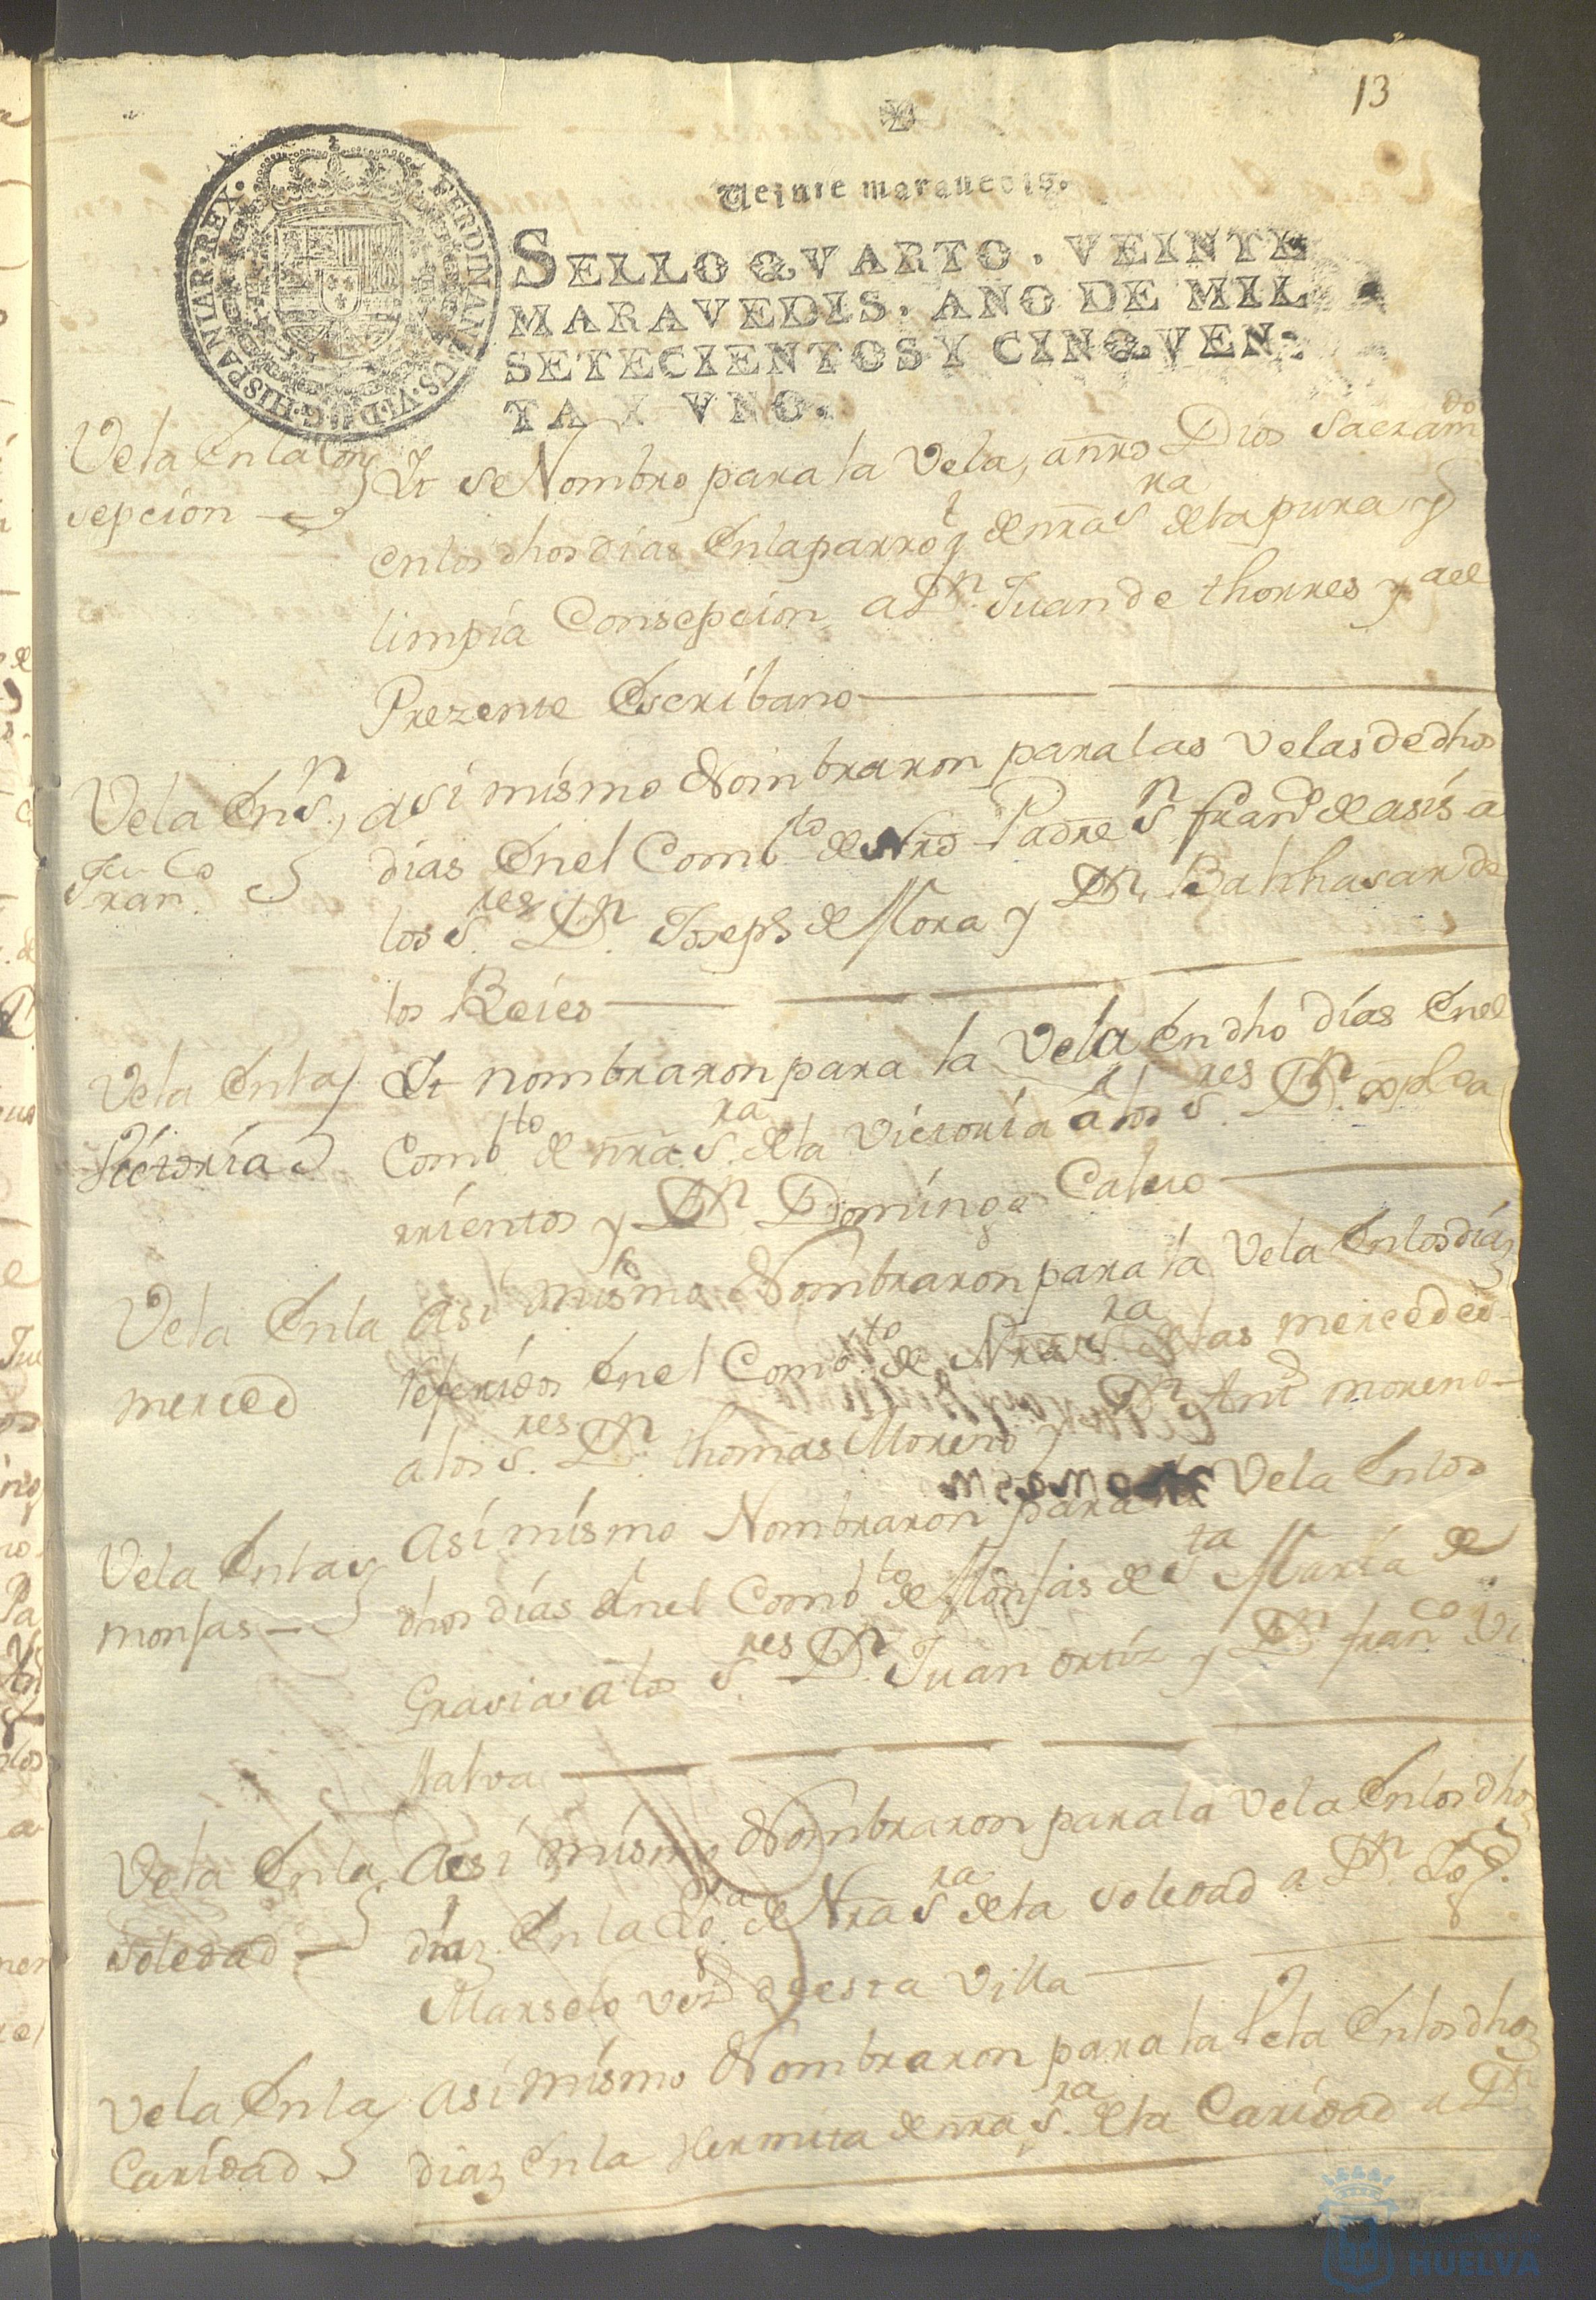 13
Veinte maravedis.
SELLO QVARTO. VEINTE
MARAVEDIS. AÑO DE MIL
SETECIENTOS Y CINQVEN-
TA Y VNO.
FERDINANDUS·VI·D·G·HISPANIAR·REX·
Vela En la Con
sepcion
It se Nombro para la Vela, a nrō Dios Sacramdo
en los dhos dias En la parroqt de nrā Sra de la pura y
limpia Consepcion a Dn. Juan de thorres y a el
Prezente Escribano
Vela En Sn.
Franco
asi mismo Nombraron para las Velas de dhos
dias En el Combto de Nrō Padre Sn franco de asis a
los Sres Dn Joseph de Mora y Dn. Balthasar de
los Reies
Vela En la
Victoria
It nombraron para la Vela En dho dias En el
Combto de nrā Sra. de la Victoria a los Sres Dn.
rrientos y Dn Domingo Calvo
Vela En la
merced
Asi mismo Nombraron para la Vela En los dias
referidos En el Combto de Nrā Sra. de las mercedes
a los Sres. Dn. thomas Moreno y Dn. Anto moreno
Vela En las
monjas
Asi mismo Nombraron para la Vela En los
dhos dias En el Combto de Monjas de Sta Maria de
Gracia a los Sres Dn Juan ortiz y Dn franco Vi
llalva
Vela En la
Soledad
Asi mismo Nombraron para la Vela En los dhos
diaz En la de Nrā Sra de la Soledad a Dn.
Marselo vez.o de esta Villa
Vela En la
Caridad
Asi mismo Nombraron para la Vela En los dhoz
diaz En la Hermita de nrā Sra. de la Caridad a Dn
HUELVA